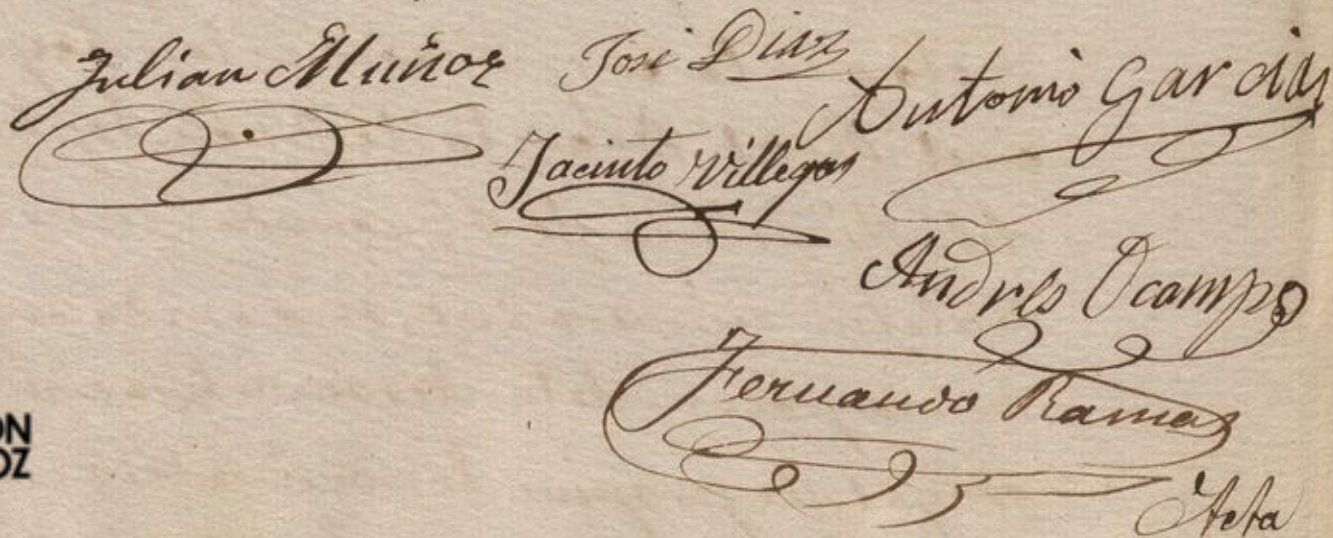 Julian Muñoz
José Diaz
Antonio Garcias
Jacinto Villegas
Andrés Ocampo
Fernando Ramas
Acta
ON
OZ